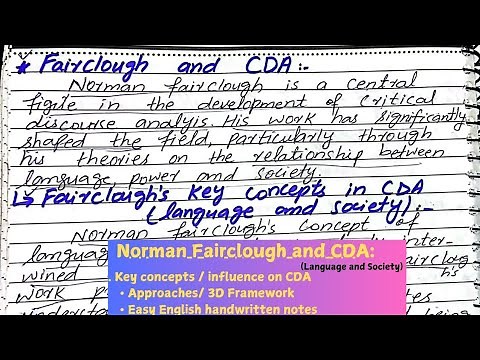 * Fairclough and CDA:-
Norman fairclough is a central
figite in the development of Critical
discourse analysis. His work has significantly
shaped the field, particularly through
his theories on the relationship between
language, power and society.
↳ Fairclough's Key concepts in CDA
(language and society):-
Norman fairclough's Concept of
langua
inter-
wined
Fairclough's
work p
Norman Fairclough and CDA:
(Language and Society)
Key concepts / influence on CDA
• Approaches/ 3D Framework
• Easy English handwritten notes